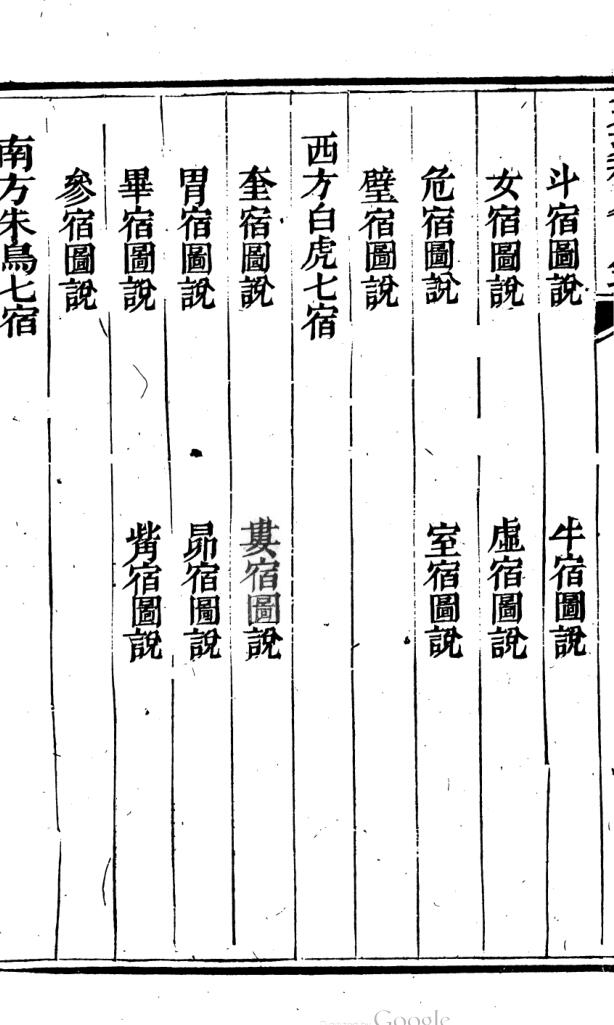 斗宿圖說　牛宿圖說
女宿圖說　虛宿圖說
危宿圖說　室宿圖說
壁宿圖說
西方白虎七宿
奎宿圖說　婁宿圖說
胃宿圖說　昴宿圖說
畢宿圖說　觜宿圖說
參宿圖說
南方朱鳥七宿
Google